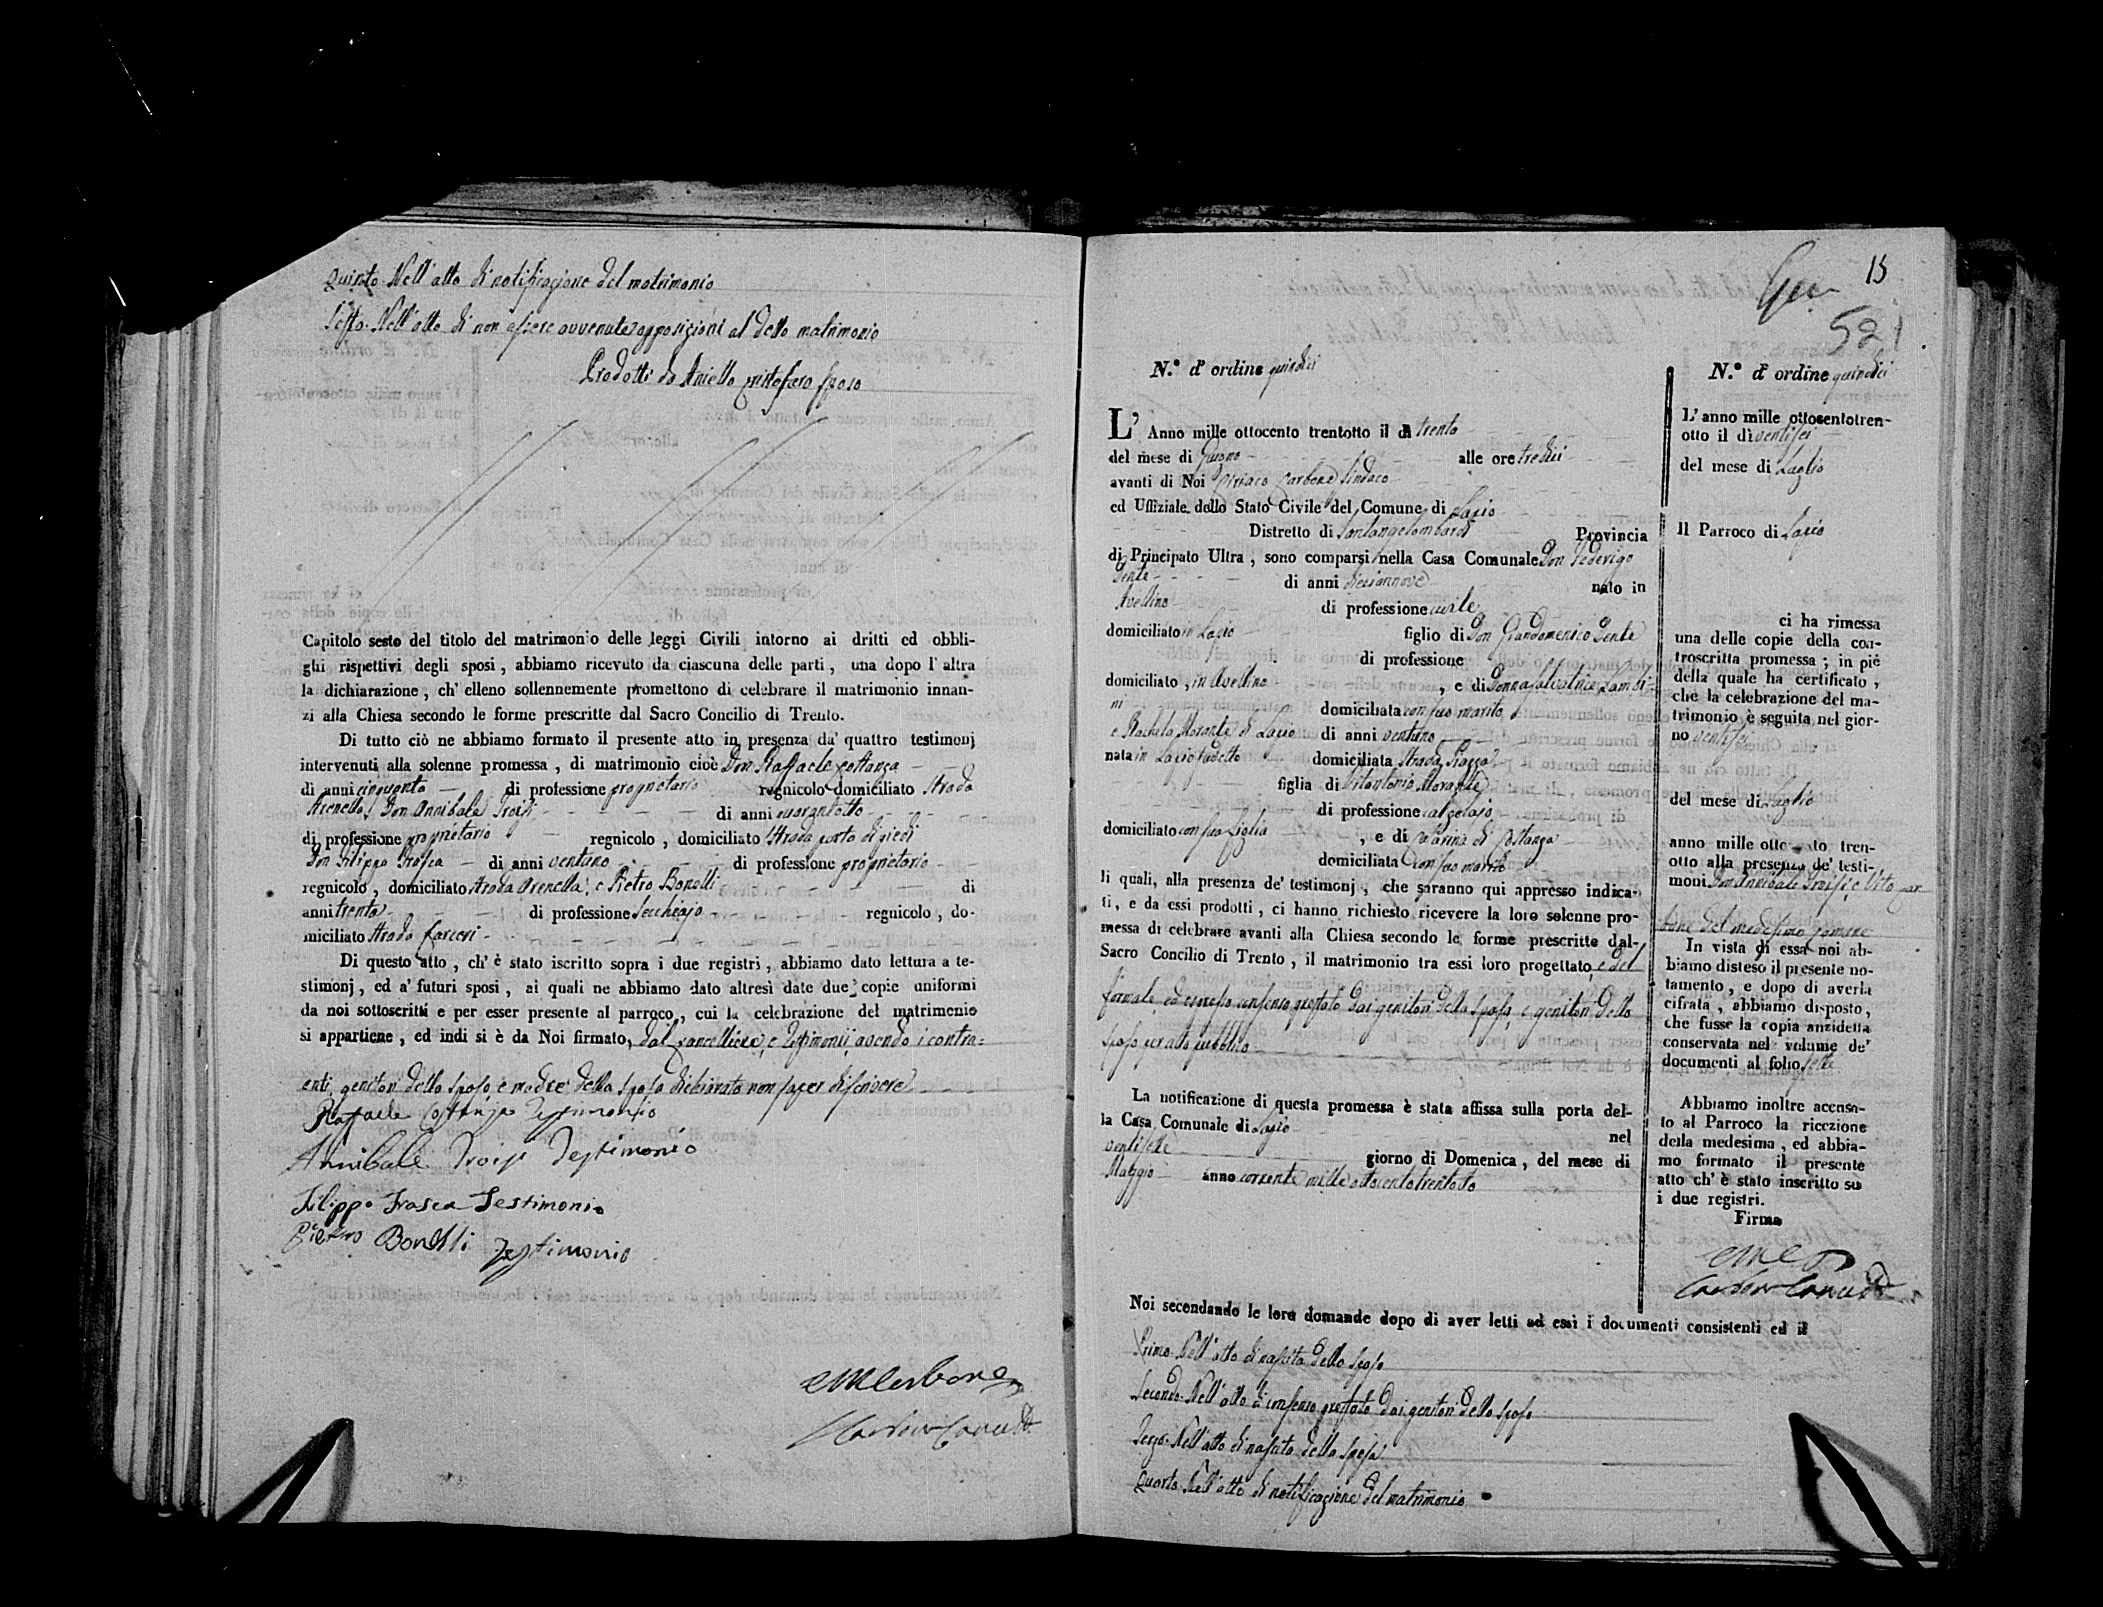 Quinto. Nell'atto di notificazione del matrimonio
Sesto. Nell'atto di non essere avvenute opposizioni al detto matrimonio
Prodotti da Aniello Cristofaro sposo
Capitolo sesto del titolo del matrimonio delle leggi Civili intorno ai dritti ed obbli-
ghi rispettivi degli sposi, abbiamo ricevuto da ciascuna delle parti, una dopo l'altra
la dichiarazione, ch'elleno sollennemente promettono di celebrare il matrimonio innan-
zi alla Chiesa secondo le forme prescritte dal Sacro Concilio di Trento.
Di tutto ciò ne abbiamo formato il presente atto in presenza da' quattro testimonj
intervenuti alla solenne promessa, di matrimonio cioè Don Raffaele Costanza
di anni cinquanta di professione proprietario regnicolo domiciliato Strada
Arenella, Don Annibale Troisi di anni quarantotto
di professione proprietario regnicolo, domiciliato Strada porta di piedi
Don Filippo Frasca di anni ventuno di professione proprietario
regnicolo, domiciliato Strada Arenella, e Pietro Bonelli di
anni trenta di professione regnicolo, do-
miciliato Strada
Di questo atto, ch'è stato iscritto sopra i due registri, abbiamo dato lettura a te-
stimonj, ed a' futuri sposi, ai quali ne abbiamo dato altresì date due copie uniformi
da noi sottoscritti e per esser presente al parroco, cui la celebrazione del matrimonio
si appartiene, ed indi si è da Noi firmato, dal Cancelliere, e Testimonii avendo i contra=
enti, genitori dello sposo, e madre della sposa dichiarato non saper di scrivere
Raffaele Costanza Testimonio
Annibale Troisi Testimonio
Filippo Frasca Testimonio
Pietro Bonelli Testimonio
15
521
N.° d'ordine quindici
L'Anno mille ottocento trentotto il dì trenta
del mese di Giugno alle ore tredici
avanti di Noi Ciriaco Carbone Sindaco
ed Uffiziale dello Stato Civile del Comune di Lapio
Distretto di Santangelombardi Provincia
di Principato Ultra, sono comparsi nella Casa Comunale Don Federigo
di anni diciannove nato in
Avellino di professione civile
domiciliato in Lapio figlio di Don Giandomenico
di professione
domiciliato, in Avellino, e di Donna Salvatrice Lambi-
ni domiciliata con suo marito
e Rachela Morante di Lapio di anni ventuno
nata in Lapio sudetto domiciliata Strada Piazza
figlia di Vitantonio Morante
di professione calzolajo
domiciliato con sua figlia, e di Catarina di Costanza
domiciliata con suo marito
li quali, alla presenza de' testimonj, che saranno qui appresso indica-
ti, e da essi prodotti, ci hanno richiesto ricevere la loro solenne pro-
messa di celebrare avanti alla Chiesa secondo le forme prescritte dal-
Sacro Concilio di Trento, il matrimonio tra essi loro progettato, e del
formale, ed espresso consenso prestato dai genitori della sposa, e genitori dello
sposo per atto pubblico
La notificazione di questa promessa è stata affissa sulla porta del-
la Casa Comunale di Lapio nel
ventisette giorno di Domenica, del mese di
Maggio anno corrente mille ottocento trentotto
Noi secondando le loro domande dopo di aver letti ad essi i documenti consistenti ed il
Primo. Nell'atto di nascita dello sposo
Secondo. Nell'atto di consenso prestato dai genitori dello sposo
Terzo. Nell'atto di nascita della sposa
Quarto. Nell'atto di notificazione del matrimonio
N.° d'ordine quindici
L'anno mille ottocentotren-
otto il dì ventisei
del mese di Luglio
Il Parroco di Lapio
ci ha rimessa
una delle copie della con-
troscritta promessa; in piè
della quale ha certificato,
che la celebrazione del ma-
trimonio è seguita nel gior-
no ventisei
del mese di Luglio
anno mille ottocento tren-
otto alla presenza de' testi-
moni Don Annibale Troisi, e Vito Car
bone del medesimo Comune
In vista di essa noi ab-
biamo disteso il presente no-
tamento, e dopo di averla
cifrata, abbiamo disposto,
che fusse la copia anzidetta
conservata nel volume de'
documenti al folio sette
Abbiamo inoltre accusa-
to al Parroco la ricezione
della medesima, ed abbia-
mo formato il presente
atto ch'è stato inscritto su
i due registri.
Firma